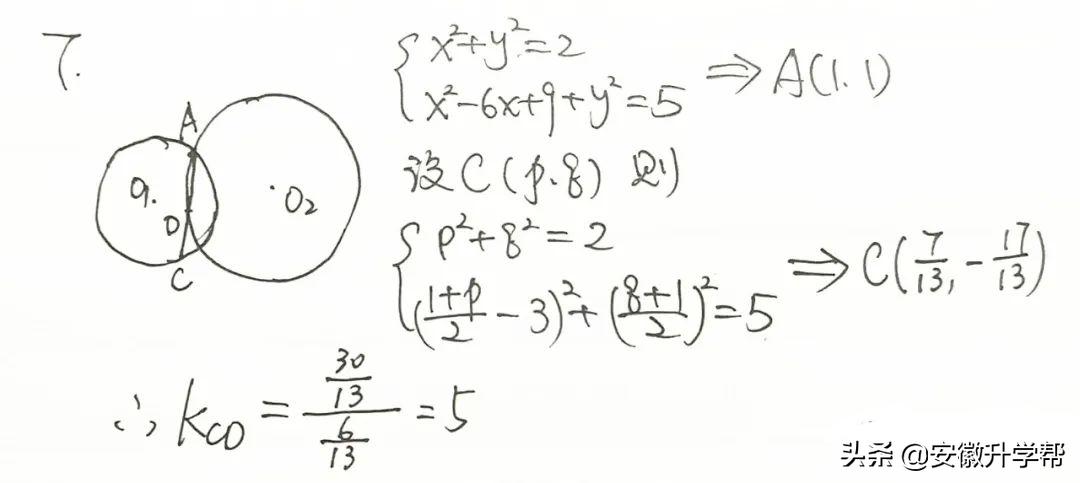 7.
A
O₁.
.O₂
D
C
{x²+y²=2
x²-6x+9+y²=5 ⇒ A(1.1)
设C(p.q) 则
{p²+q²=2
((1+p)/2-3)²+((q+1)/2)²=5 ⇒ C(7/13,-17/13)
∴ k_CD = (30/13)/(6/13) = 5
头条 @安徽升学帮